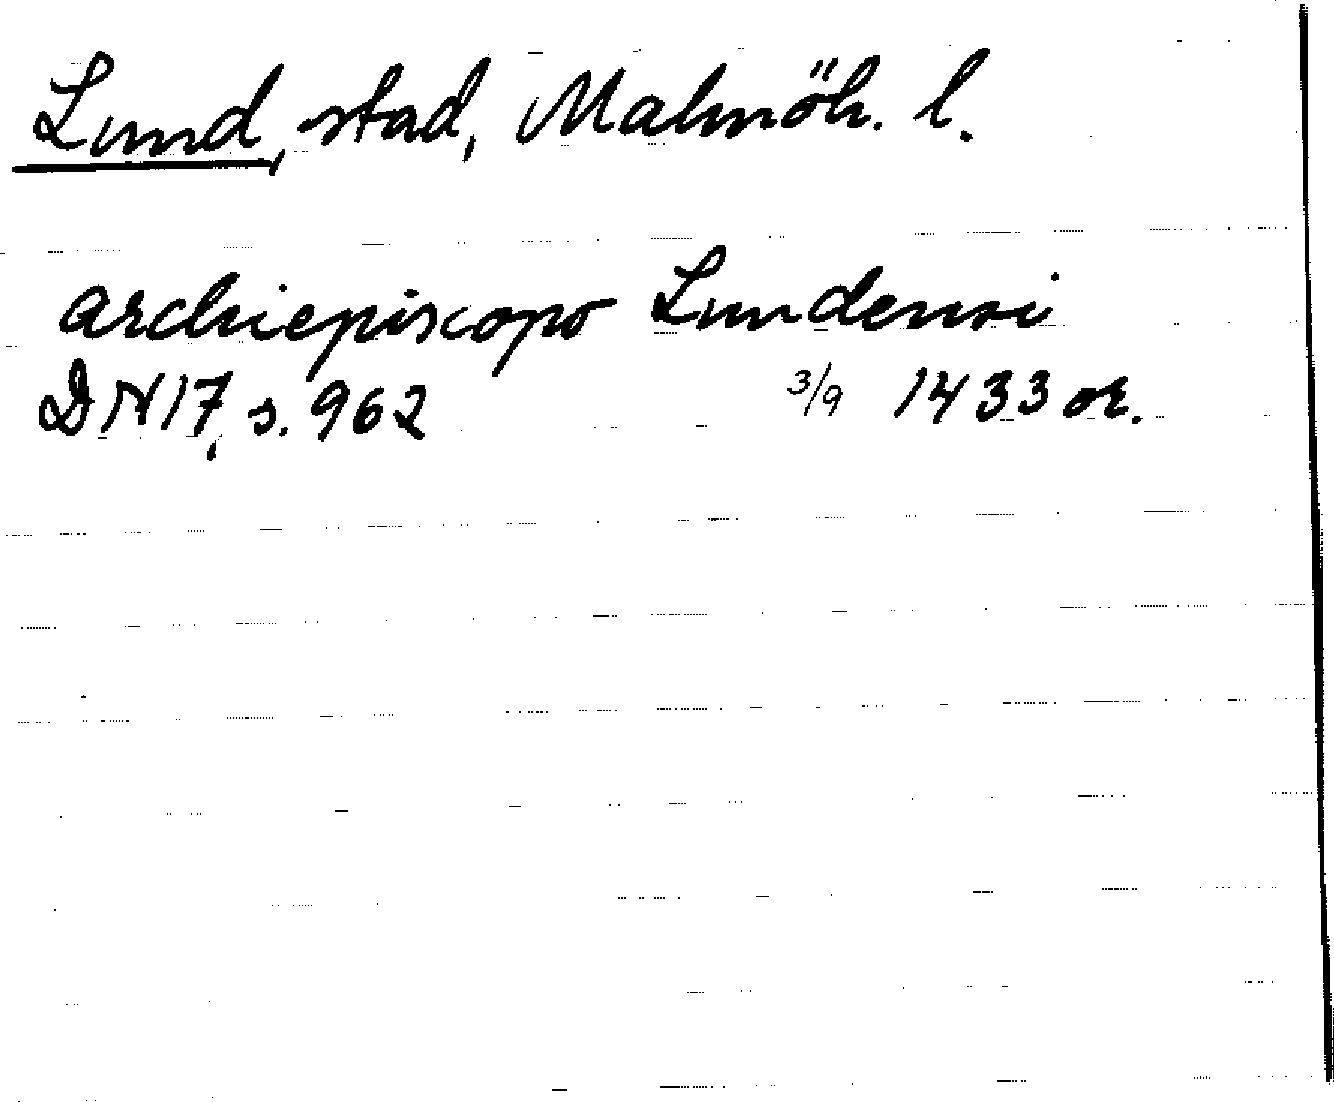 Lund, stad, Malmöh. l.
archiepiscopo Lundensi
DN 17, s. 962 3/9 1433 or.